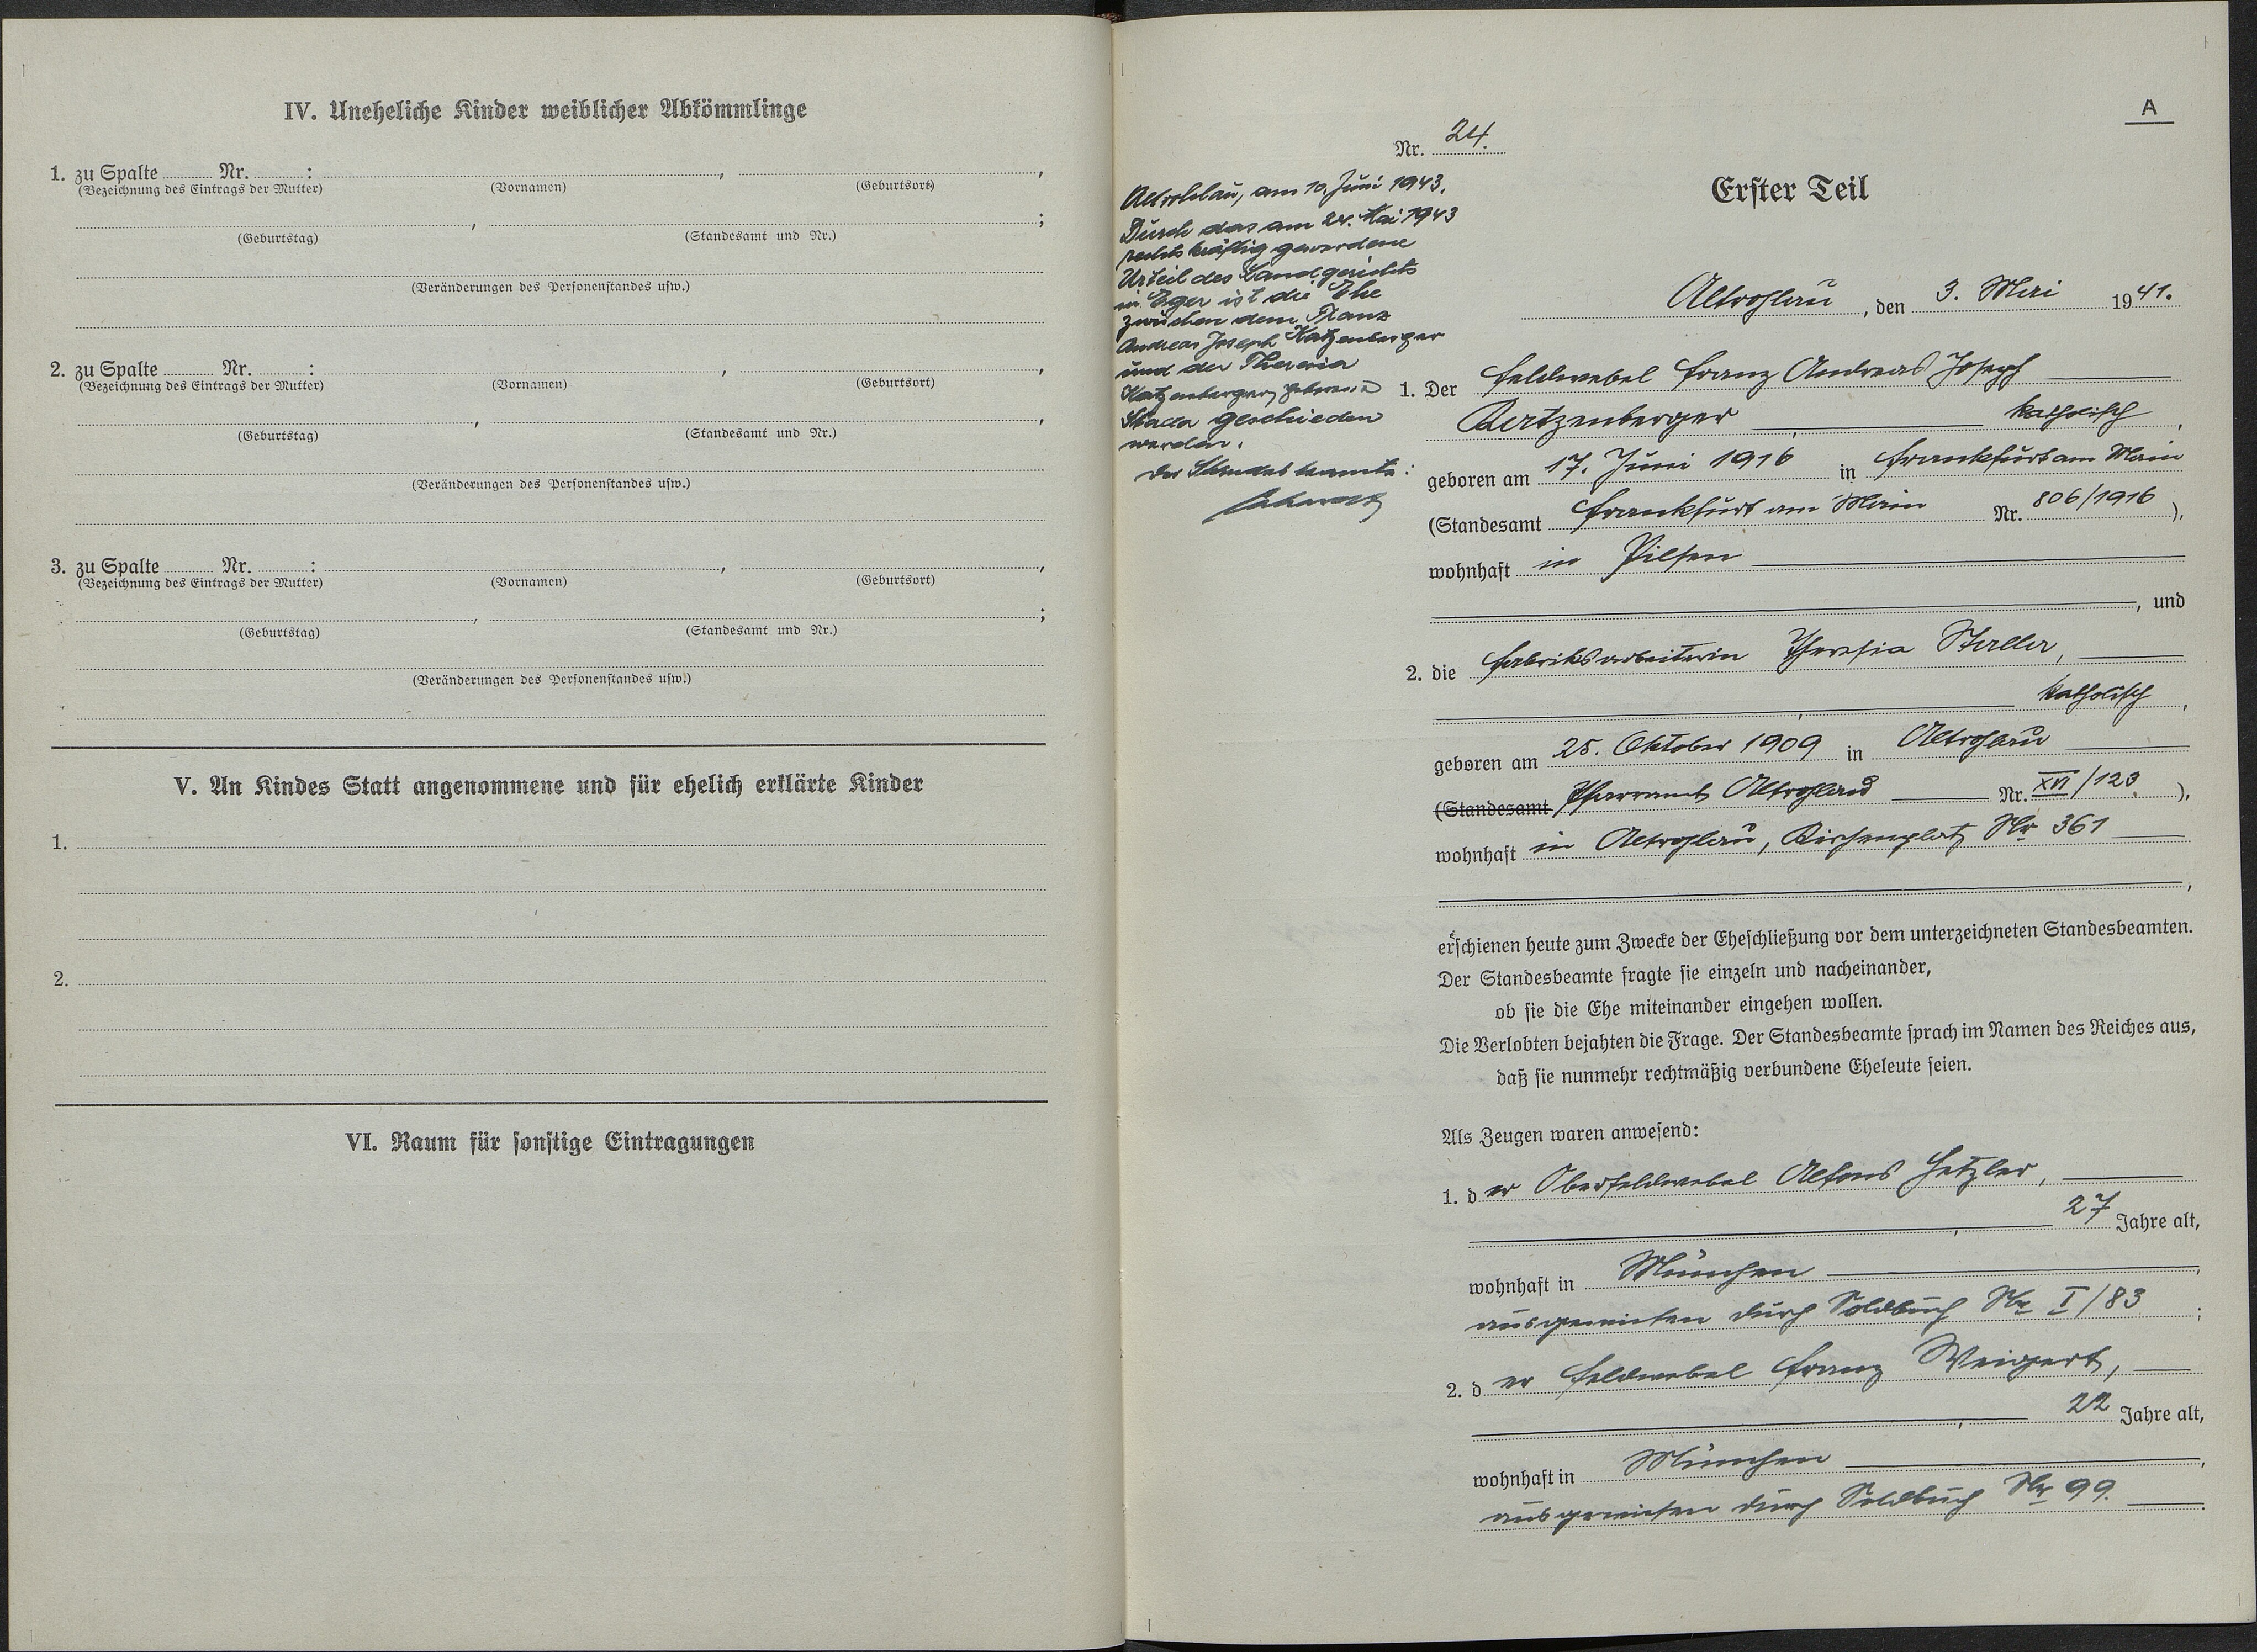 IV. Uneheliche Kinder weiblicher Abkömmlinge
1. zu Spalte Nr. : , ,
(Bezeichnung des Eintrags der Mutter) (Vornamen) (Geburtsort)
, ;
(Geburtstag) (Standesamt und Nr.)
(Veränderungen des Personenstandes usw.)
2. zu Spalte Nr. : , ,
(Bezeichnung des Eintrags der Mutter) (Vornamen) (Geburtsort)
, ,
(Geburtstag) (Standesamt und Nr.)
(Veränderungen des Personenstandes usw.)
3. zu Spalte Nr. : , ,
(Bezeichnung des Eintrags der Mutter) (Vornamen) (Geburtsort)
, ;
(Geburtstag) (Standesamt und Nr.)
(Veränderungen des Personenstandes usw.)
V. An Kindes Statt angenommene und für ehelich erklärte Kinder
1.
2.
VI. Raum für sonstige Eintragungen
A
Nr. 24.
Altrohlau, am 10. Juni 1943.
Durch das am 24. Mai 1943
rechtskräftig gewordene
Urteil des Landgerichts
in Eger ist die Ehe
zwischen dem Franz
Andreas Joseph Katzenberger
und der Theresia
Katzenberger geborene
Staller geschieden
worden.
Der Standesbeamte:
Erster Teil
Altrohlau, den 3. Mai 1941.
1. Der Feldwebel Franz Andreas Joseph
Katzenberger, katholisch,
geboren am 17. Juni 1916 in Frankfurt am Main
(Standesamt Frankfurt am Main Nr. 806/1916),
wohnhaft in Pilsen
, und
2. die Fabriksarbeiterin Theresia Staller,
, katholisch,
geboren am 25. Oktober 1909 in Altrohlau
(Standesamt Pfarramt Altrohlau Nr. XVI/123.),
wohnhaft in Altrohlau, Kirchenplatz Nr 361
,
erschienen heute zum Zwecke der Eheschließung vor dem unterzeichneten Standesbeamten.
Der Standesbeamte fragte sie einzeln und nacheinander,
ob sie die Ehe miteinander eingehen wollen.
Die Verlobten bejahten die Frage. Der Standesbeamte sprach im Namen des Reiches aus,
daß sie nunmehr rechtmäßig verbundene Eheleute seien.
Als Zeugen waren anwesend:
1. der Oberfeldwebel Alfons Hetzler,
, 27 Jahre alt,
wohnhaft in München,
ausgewiesen durch Soldbuch Nr I/83;
2. der Feldwebel Franz Weigert,
, 22 Jahre alt,
wohnhaft in München,
ausgewiesen durch Soldbuch Nr 99.